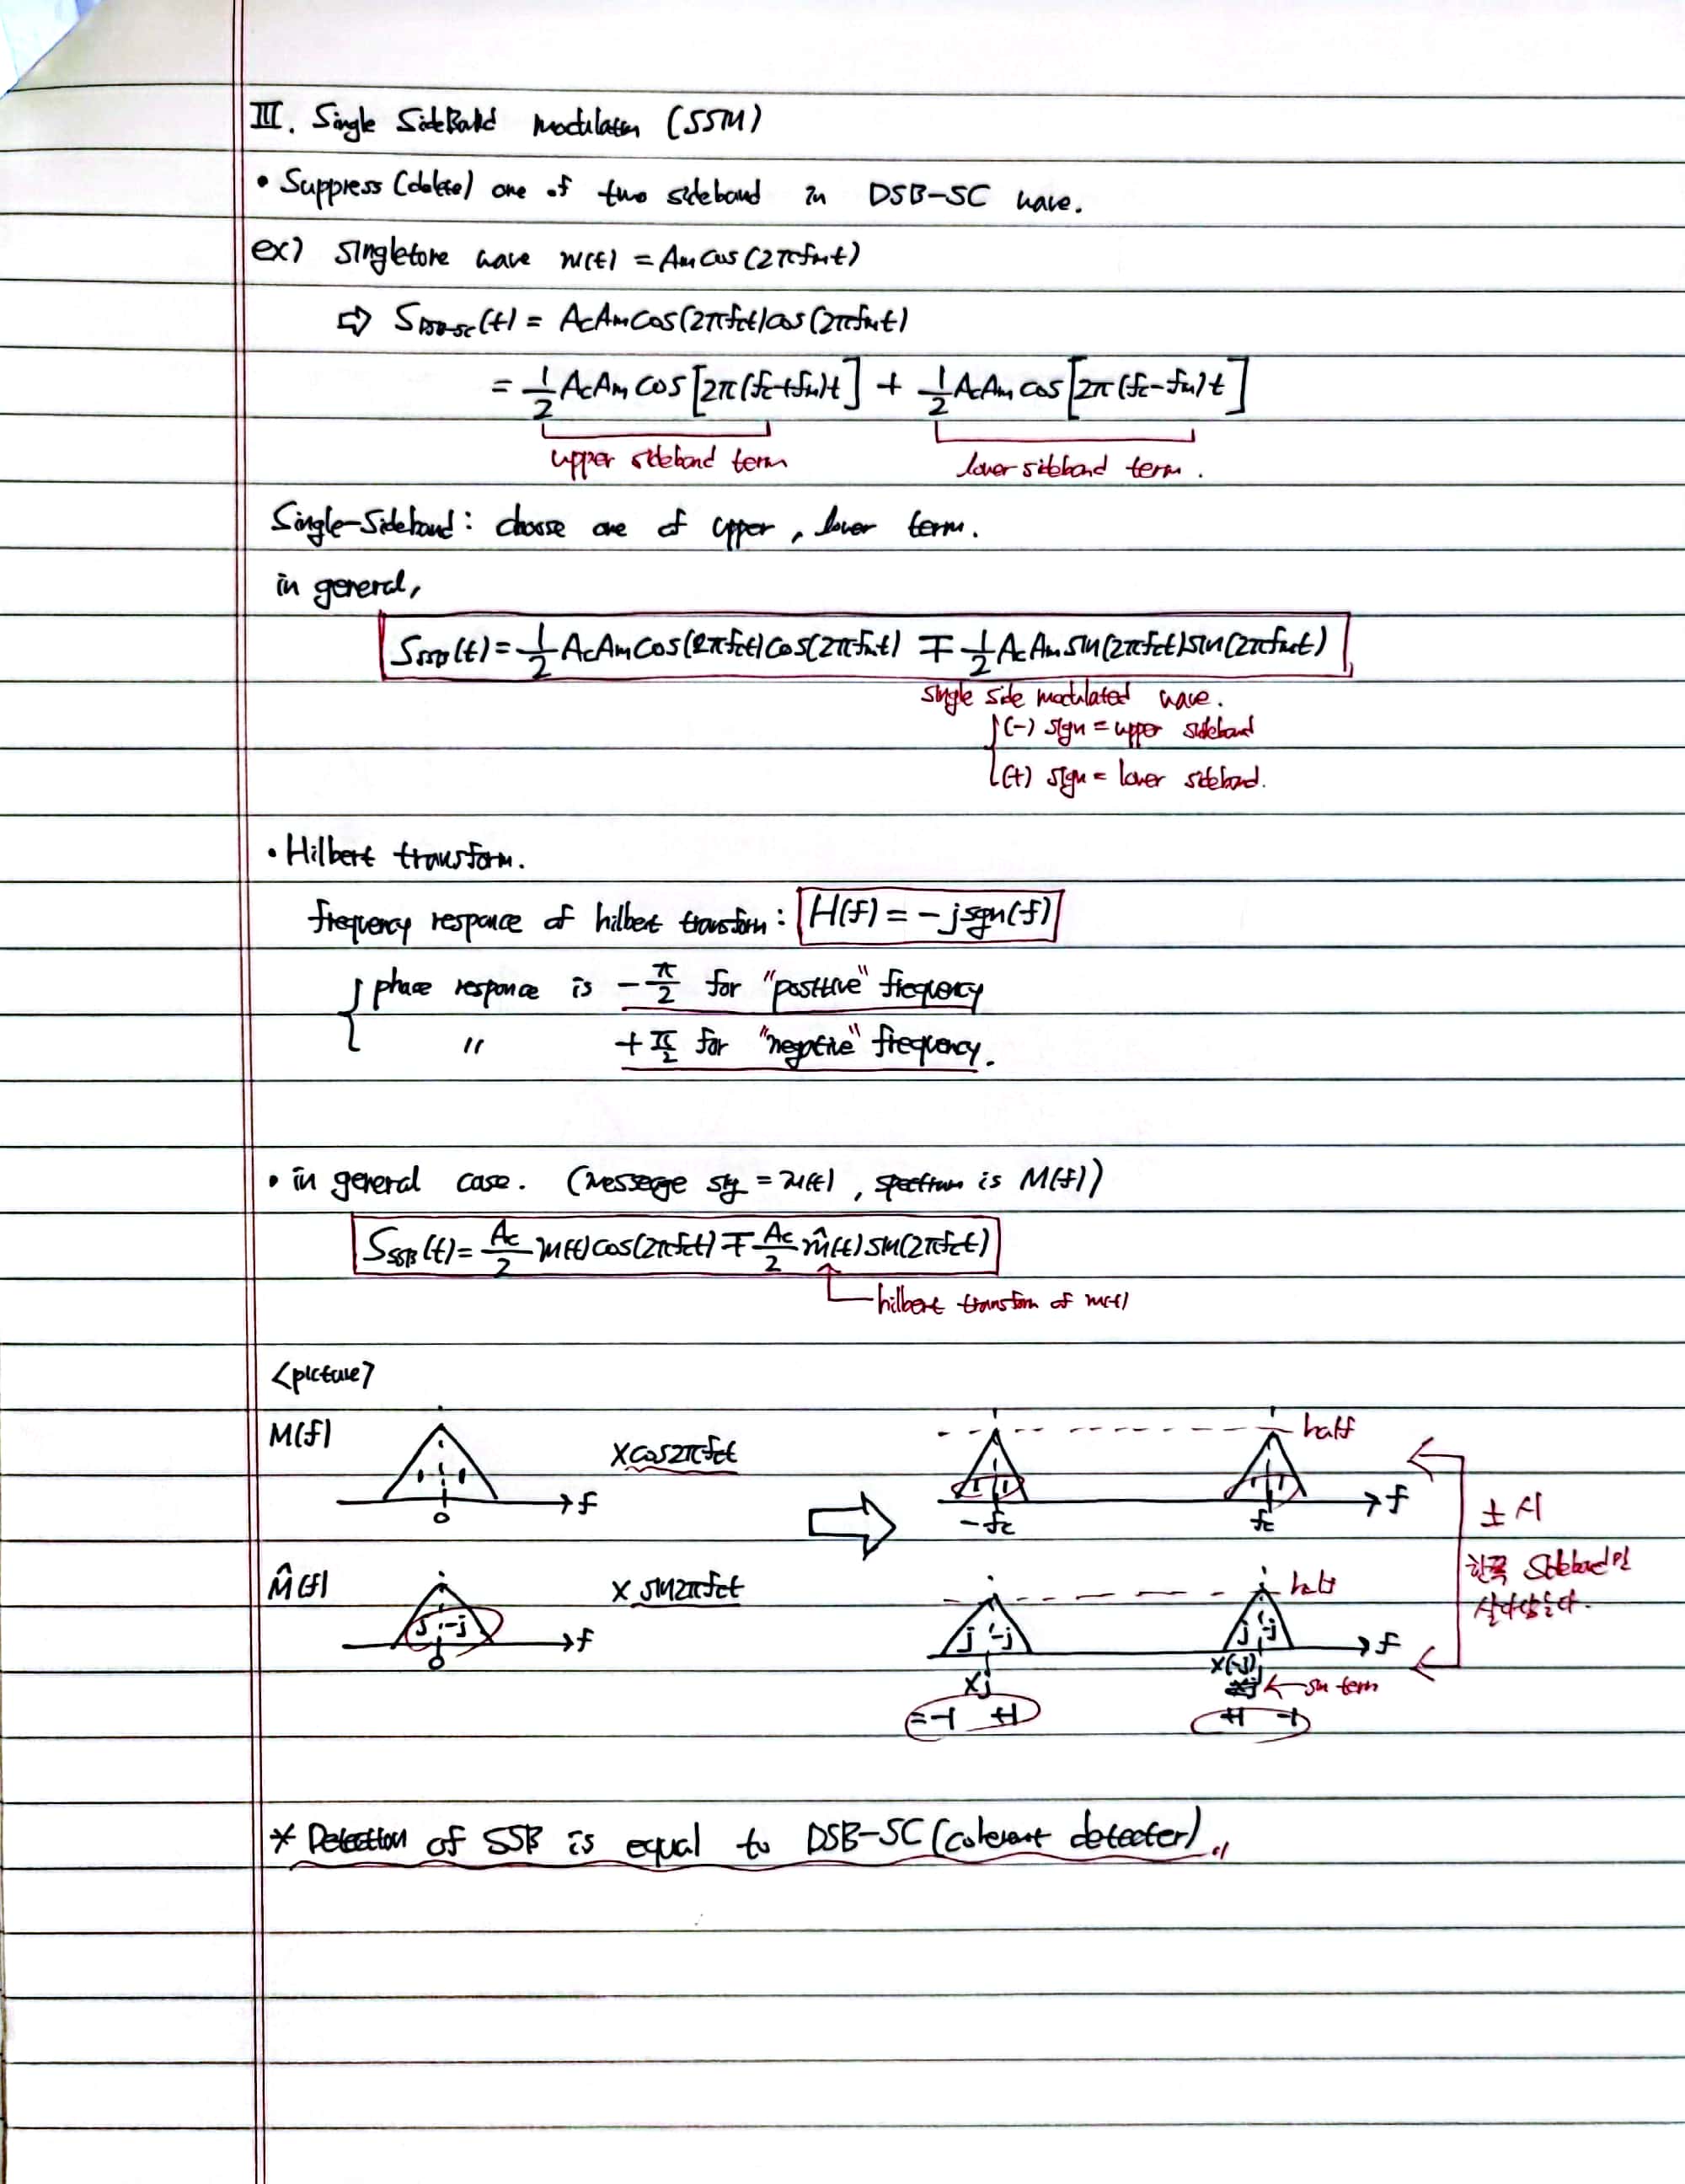 III. Single SideBand modulation (SSM)
• Suppress (delete) one of two sideband in DSB-SC wave.
ex) singletone wave m(t) = Am cos(2πfmt)
⇨ S_DSB-SC(t) = AcAm cos(2πfct)cos(2πfmt)
= 1/2 AcAm cos[2π(fc+fm)t] + 1/2 AcAm cos[2π(fc-fm)t]
upper sideband term lower sideband term.
Single-Sideband: choose one of upper, lower term.
in general,
S_SSB(t) = 1/2 AcAm cos(2πfct)cos(2πfmt) ∓ 1/2 AcAm sin(2πfct)sin(2πfmt)
single side modulated wave.
(-) sign = upper sideband
(+) sign = lower sideband.
• Hilbert transform.
frequency responce of hilbert transform: H(f) = -jsgn(f)
phase responce is -π/2 for "positive" frequency
" +π/2 for "negative" frequency.
• in general case. (message sig = m(t), spectrum is M(f))
S_SSB(t) = Ac/2 m(t)cos(2πfct) ∓ Ac/2 m̂(t)sin(2πfct)
hilbert transform of m(t)
<picture>
M(f) 1 1 0 f ×cos2πfct 1 1 -fc 1 1 fc f half
± 시
한쪽 Sideband만
살아남는다.
M̂(f) j -j 0 f × sin2πfct j -j j -j f half
×j ×(-j)
sin term
= -1 +1 +1 -1
* Detection of SSB is equal to DSB-SC (coherent detecter).,,